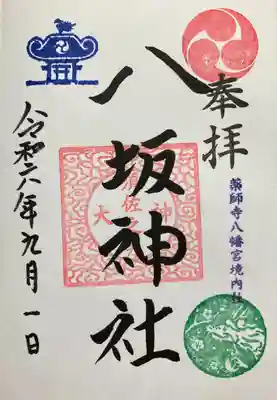 奉拝
薬師寺八幡宮境内社
八坂神社
令和六年九月一日